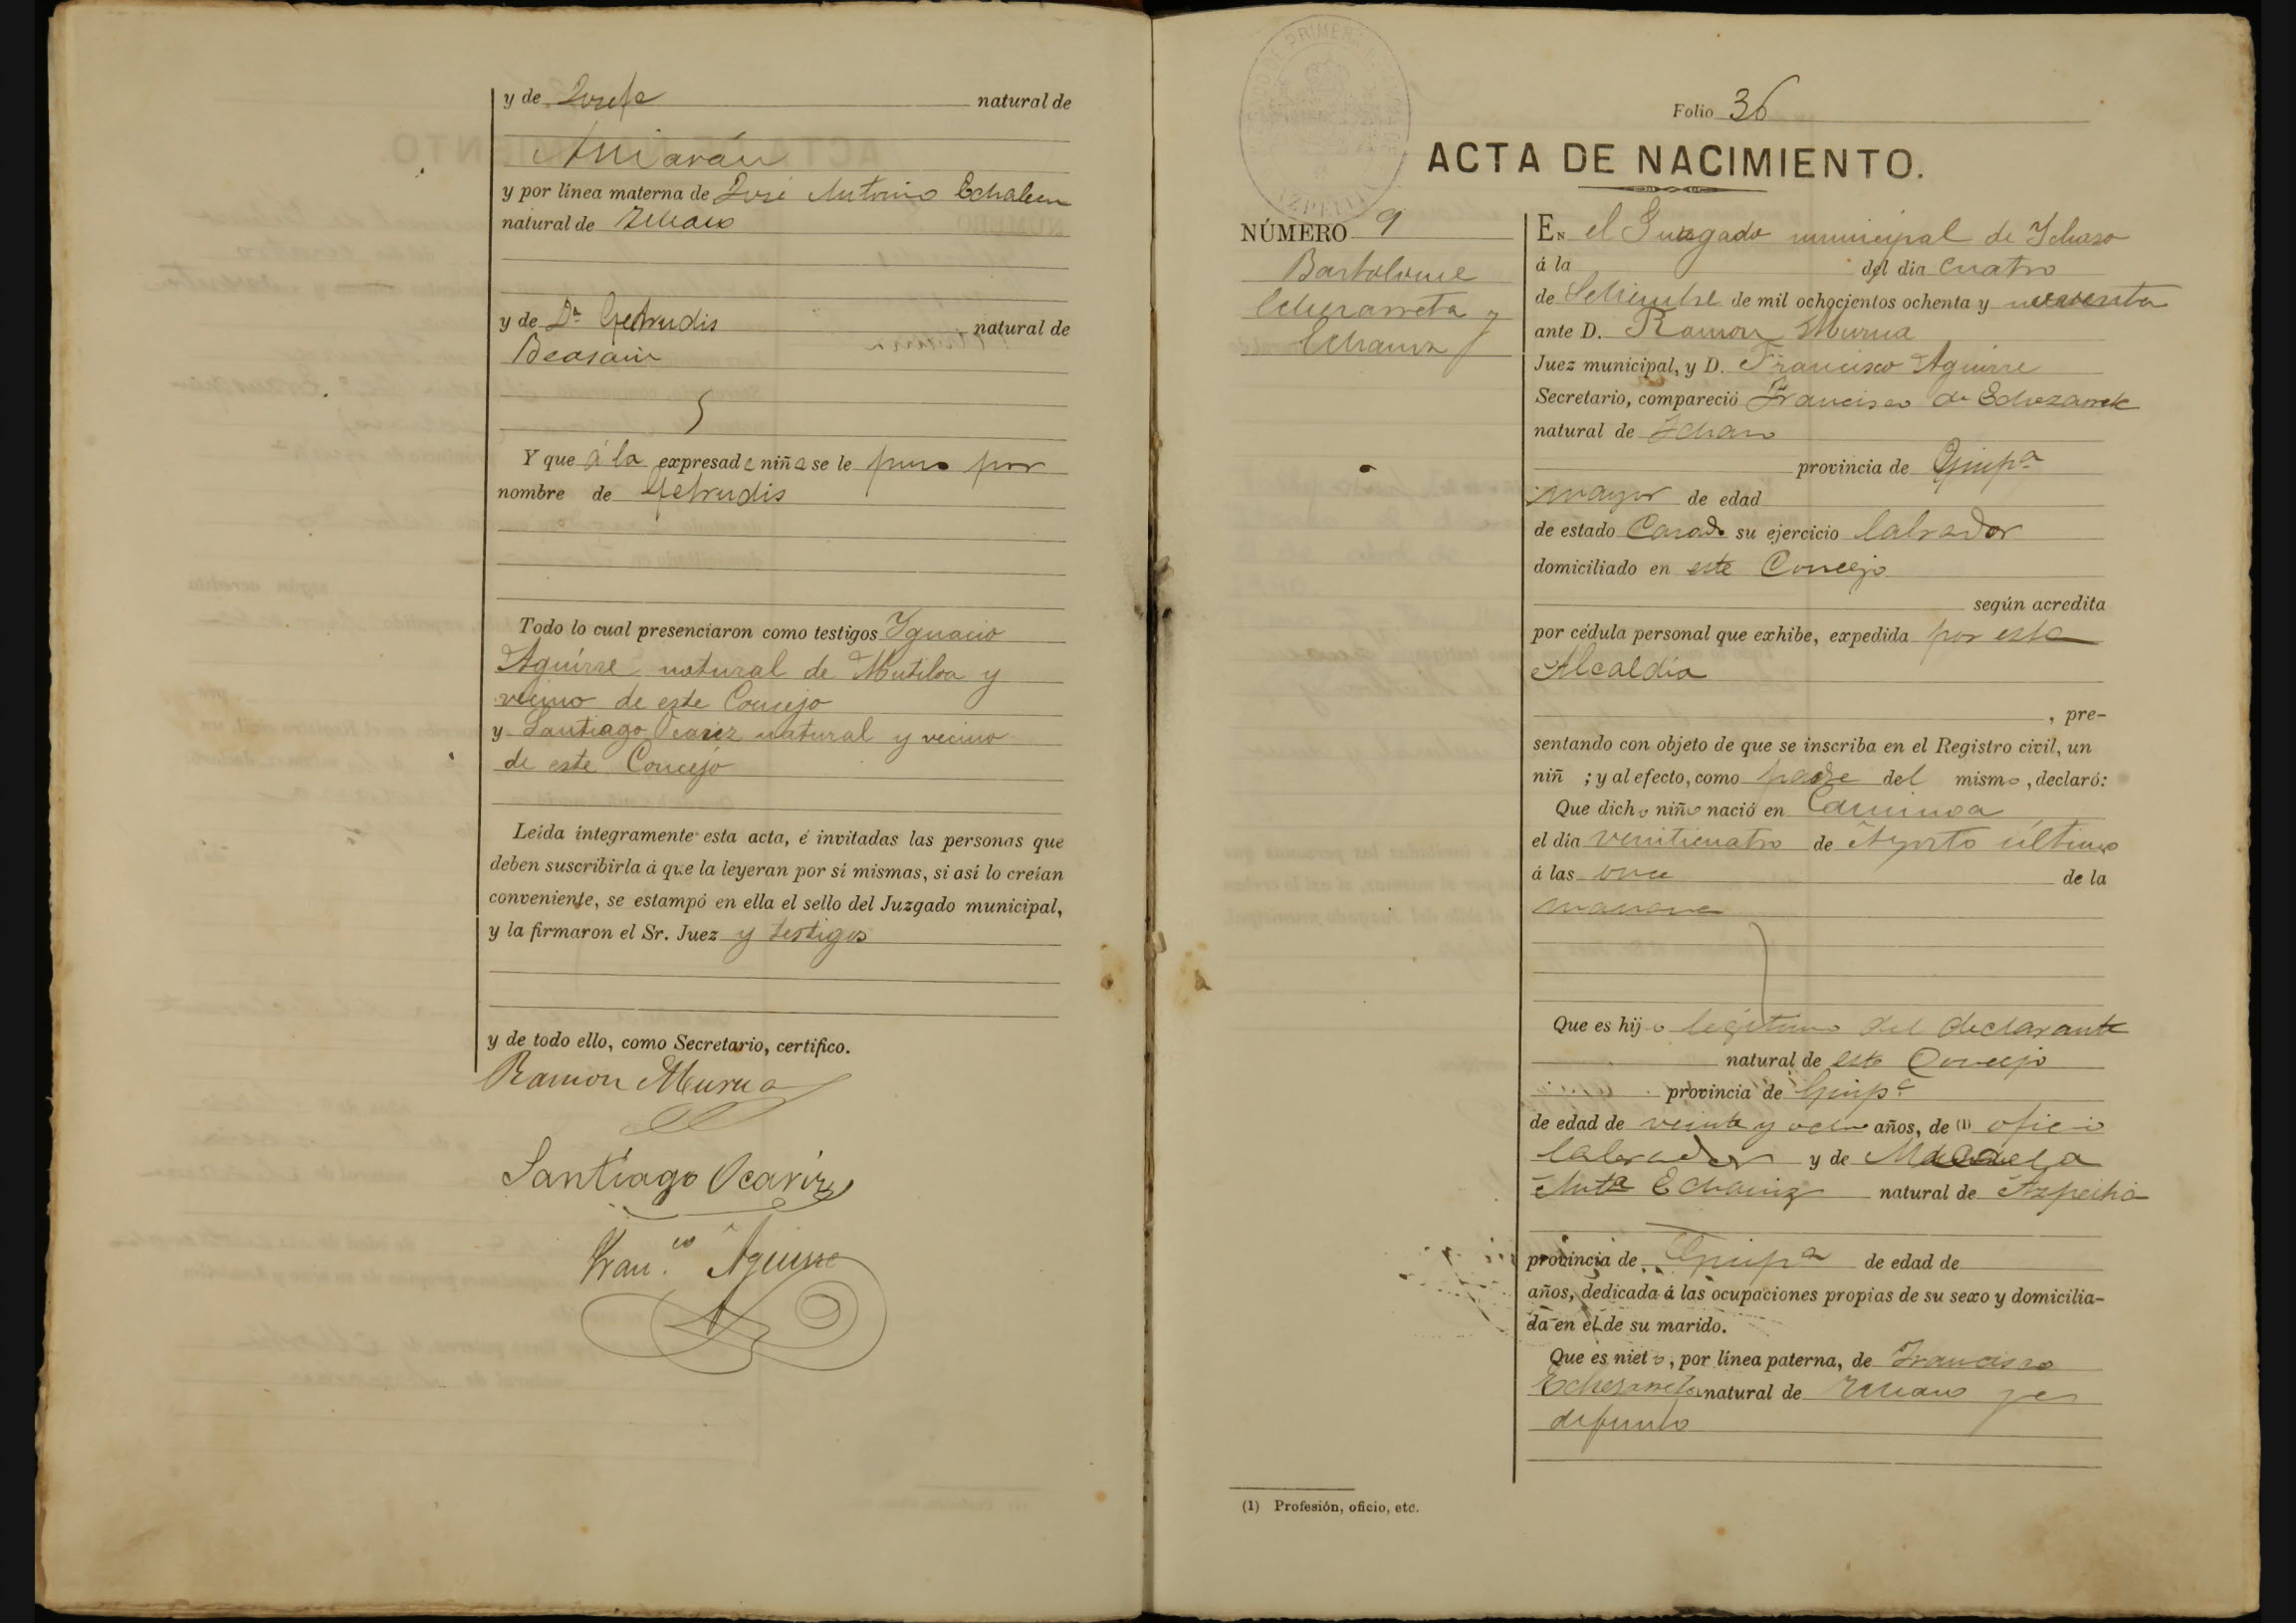 y de Josefa natural de
Amiarán
y por línea materna de José Antonio Echaleen
natural de Ichaso
y de Dª Getrudis natural de
Beasain
Y que á la expresada niña se le puso por
nombre de Getrudis
Todo lo cual presenciaron como testigos Ygnacio
Aguirre natural de Mutiloa y
vecino de este Concejo
y Santiago Ocariz natural y vecino
de este Concejo
Leída íntegramente esta acta, é invitadas las personas que
deben suscribirla á que la leyeran por sí mismas, si así lo creían
conveniente, se estampó en ella el sello del Juzgado municipal,
y la firmaron el Sr. Juez y testigos
y de todo ello, como Secretario, certifico.
Ramon Murua
Santiago Ocariz
Fran.co Aguirre
Folio 36
ACTA DE NACIMIENTO.
AZPEITIA
NÚMERO 9
Bartolome
Echezarreta y
Echaniz
EN el Juzgado municipal de Ychaso
á la del día cuatro
de Setiembre de mil ochocientos ochenta y noventa
ante D. Ramon Murua
Juez municipal, y D. Francisco Aguirre
Secretario, compareció Francisco de Echezarreta
natural de Ichaso
provincia de Guipª
mayor de edad
de estado Casado su ejercicio labrador
domiciliado en este Concejo
según acredita
por cédula personal que exhibe, expedida por esta
Alcaldia
, pre-
sentando con objeto de que se inscriba en el Registro civil, un
niñ ; y al efecto, como padre del mismo, declaró:
Que dicho niño nació en Caminoa
el día veinticuatro de Agosto último
á las once de la
manana
Que es hijo legitimo del declarante
natural de este Concejo
provincia de Guipª
de edad de veinte y ocho años, de (1) oficio
labrador y de Micaela
Antª Echaniz natural de Azpeitia
provincia de Guipª de edad de
años, dedicada á las ocupaciones propias de su sexo y domicilia-
da en el de su marido.
Que es nieto, por línea paterna, de Francisco
Echezarreta natural de Ichaso ya
difunto
(1) Profesión, oficio, etc.